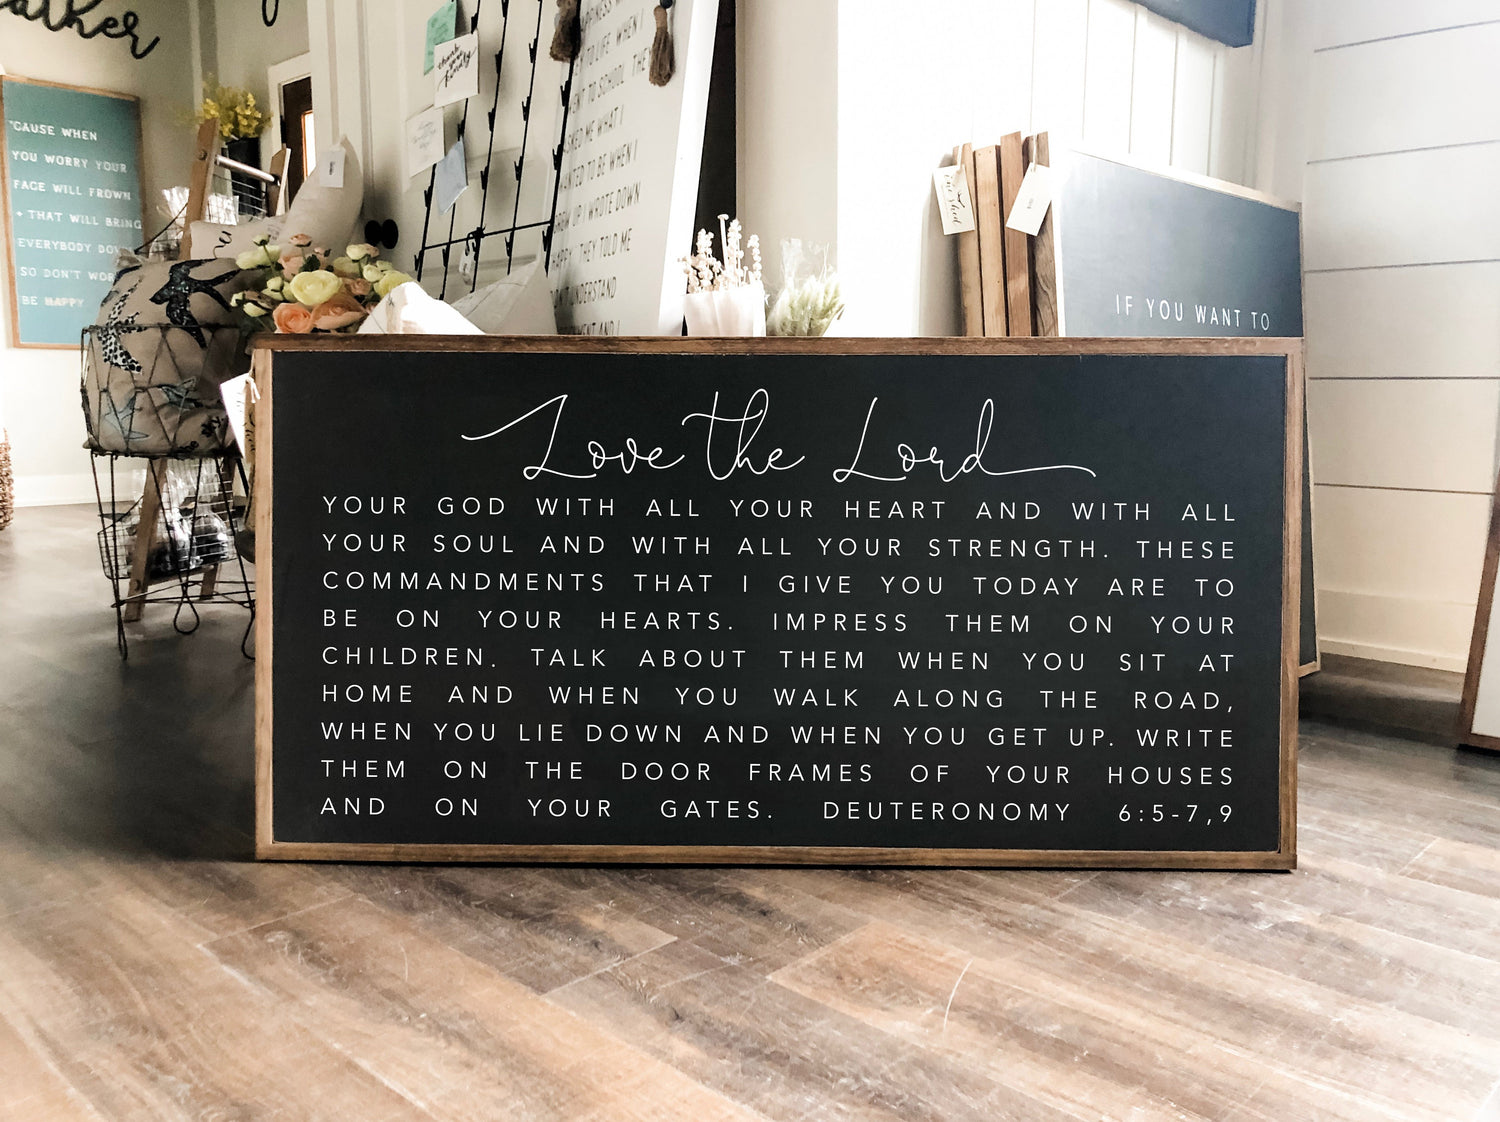 'CAUSE WHEN
YOU WORRY YOUR
FACE WILL FROWN
+ THAT WILL BRING
EVERYBODY
SO DON'T
BE HAPPY
thank you kindly
TO LIFE. WHEN I
TO SCHOOL, THE
ME WHAT I
TO BE WHEN I
UP. I WROTE DOWN
THEY TOLD ME
UNDERSTAND
AND I
IF YOU WANT TO
Love the Lord
YOUR GOD WITH ALL YOUR HEART AND WITH ALL
YOUR SOUL AND WITH ALL YOUR STRENGTH. THESE
COMMANDMENTS THAT I GIVE YOU TODAY ARE TO
BE ON YOUR HEARTS. IMPRESS THEM ON YOUR
CHILDREN. TALK ABOUT THEM WHEN YOU SIT AT
HOME AND WHEN YOU WALK ALONG THE ROAD,
WHEN YOU LIE DOWN AND WHEN YOU GET UP. WRITE
THEM ON THE DOOR FRAMES OF YOUR HOUSES
AND ON YOUR GATES. DEUTERONOMY 6:5-7,9